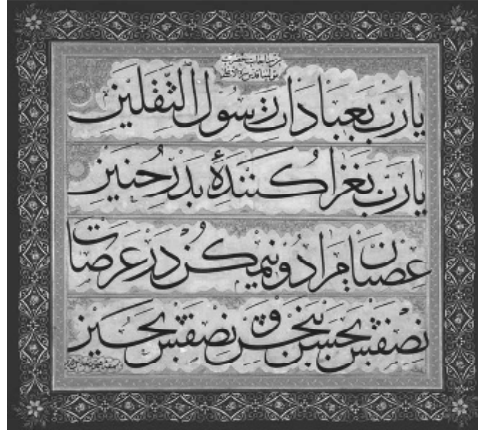 یا رب بعبادات رسول الثقلین
یا رب بغزا کنندهٔ بدر حنین
عصیان مرا دو نیم کن در عرصات
نصفیش بحسن ببخش و نصفیش بحسین